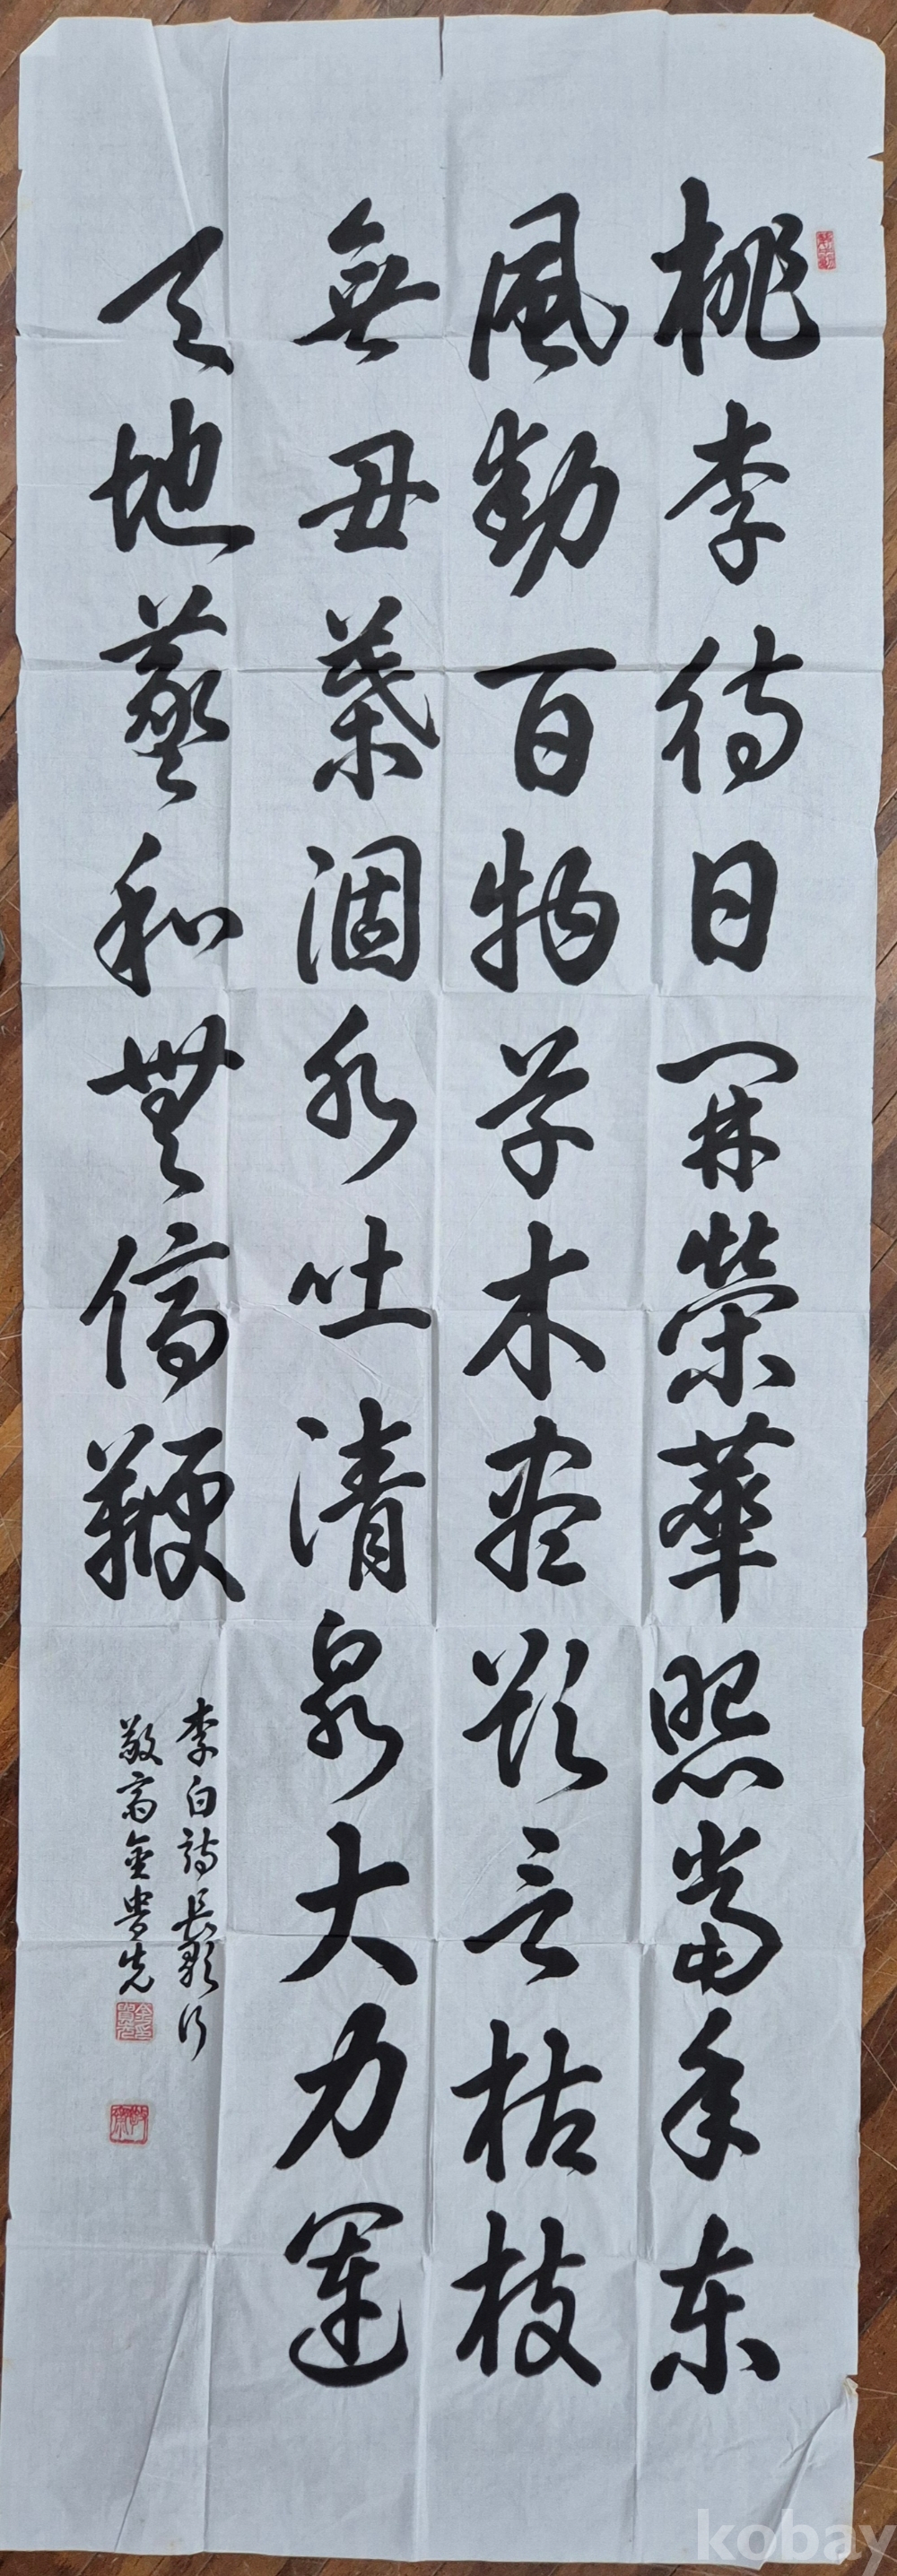 桃李待日開榮華照當年東
風動百物草木盡欲言枯枝
無丑葉涸水吐清泉大力運
天地羲和無停鞭
李白詩長歌行
敬齋金貴先
kobay